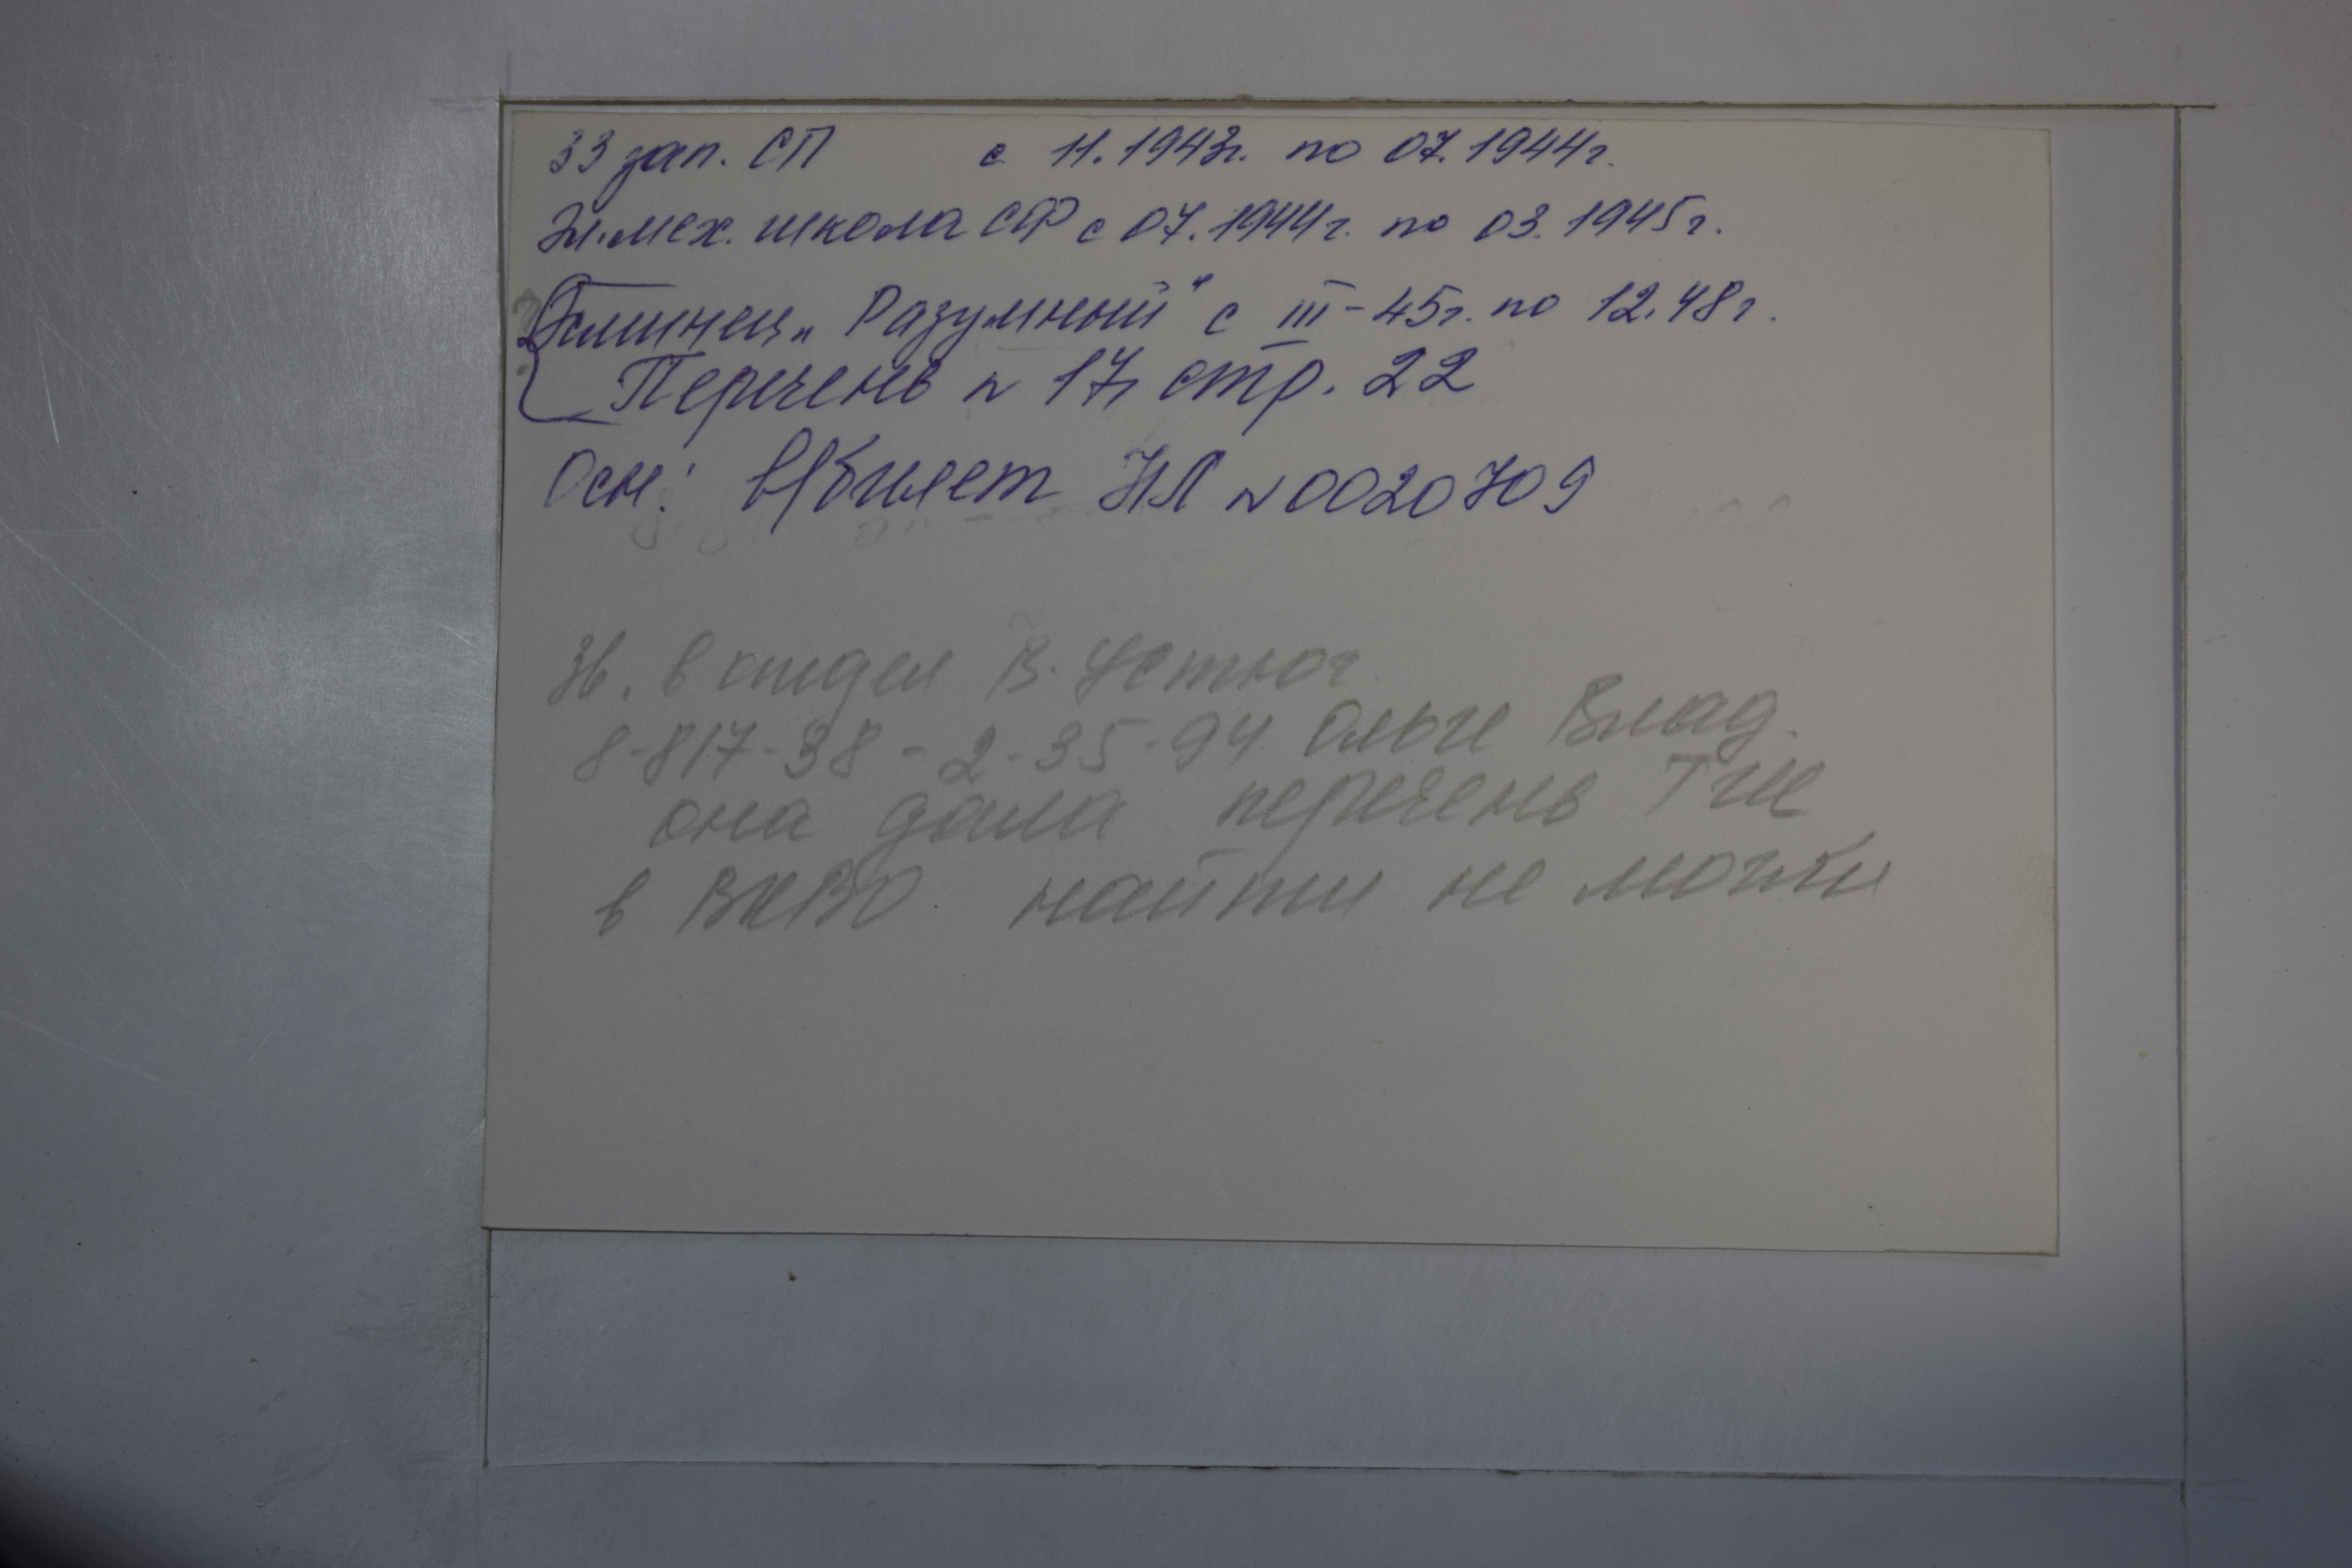 33 зап. СП с 11.1943г. по 07.1944г.
Эл.мех. школа СФ с 07.1944г. по 03.1945г.
Эсминец „Разумный" с III-45г. по 12.48г.
Перечень № 17, стр. 22
Осн: в/билет НЛ № 0020709
Зв. в отдел В. Устюг
8-817-38-2-35-94 Ольге Влад.
она дала перечень
в ВКВО найти не могли